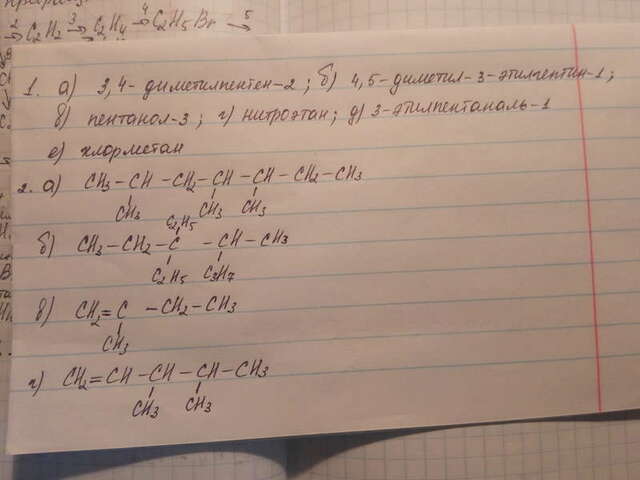 2→ C2H2 3→ C2H4 4→ C2H5Br 5→
1. а) 3,4-диметилпентен-2; б) 4,5-диметил-3-этилгептин-1;
в) пентанол-3; г) нитроэтан; д) 3-этилпентаналь-1
е) хлорметан
2. а) CH3-CH-CH2-CH-CH-CH2-CH3
CH3 CH3 CH3
C2H5
б) CH3-CH2-C-CH-CH3
C2H5 C3H7
в) CH2=C-CH2-CH3
CH3
г) CH2=CH-CH-CH-CH3
CH3 CH3